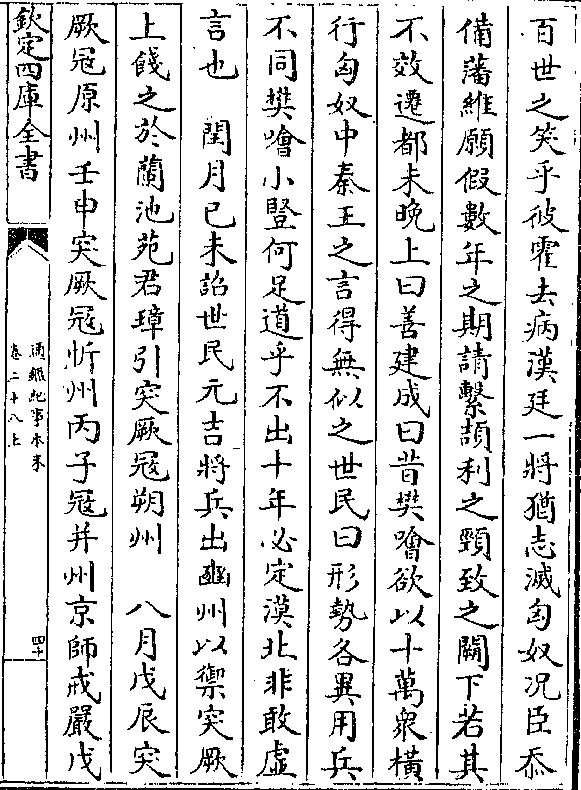 百世之笑乎彼霍去病漢廷一將猶志滅匈奴况臣忝
備藩維願假數年之期請繫頡利之頸致之闕下若其
不效遷都未晚上曰善建成曰昔樊噲欲以十萬衆橫
行匈奴中秦王之言得無似之世民曰形勢各異用兵
不同樊噲小豎何足道乎不出十年必定漠北非敢虛
言也　閏月己未詔世民元吉將兵出豳州以禦突厥
上餞之於蘭池苑君璋引突厥冦朔州　八月戊辰突
厥冦原州壬申突厥冦忻州丙子冦并州京師戒嚴戊
欽定四庫全書
通鑑紀事本末
卷二十八上
四十